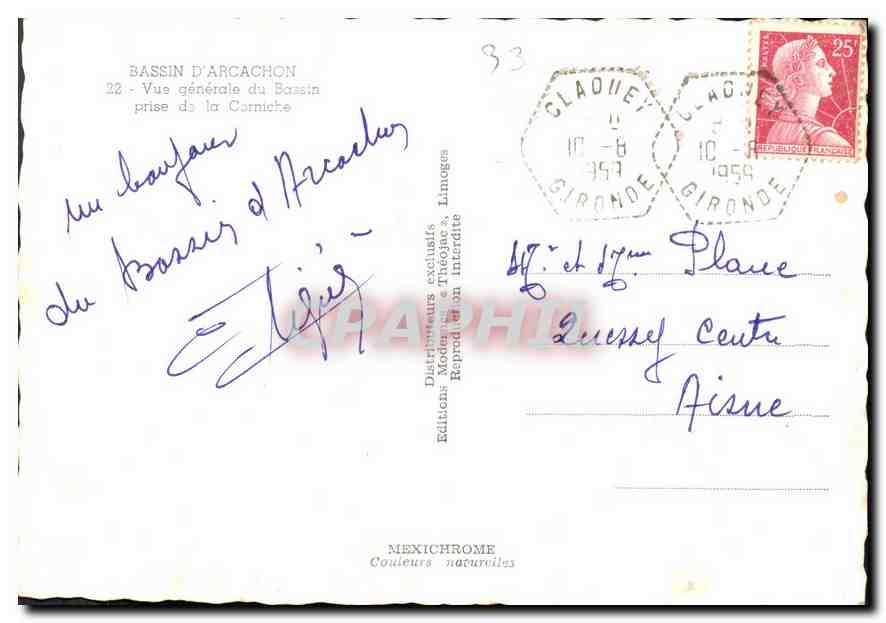 BASSIN D'ARCACHON
22 - Vue générale du Bassin
prise de la Corniche
33
un bonjour
du Bassin d'Arcachon
CLAOUEY
10 -8
1959
GIRONDE
CLAOUEY
10 -8
1959
GIRONDE
25F
POSTES
REPUBLIQUE FRANÇAISE
Distributeurs exclusifs
Editions Modernes « Théojac », Limoges
Reproduction Interdite
UPAPHIL
Mr et Mme Plane
Quessy Centre
Aisne
MEXICHROME
Couleurs naturelles